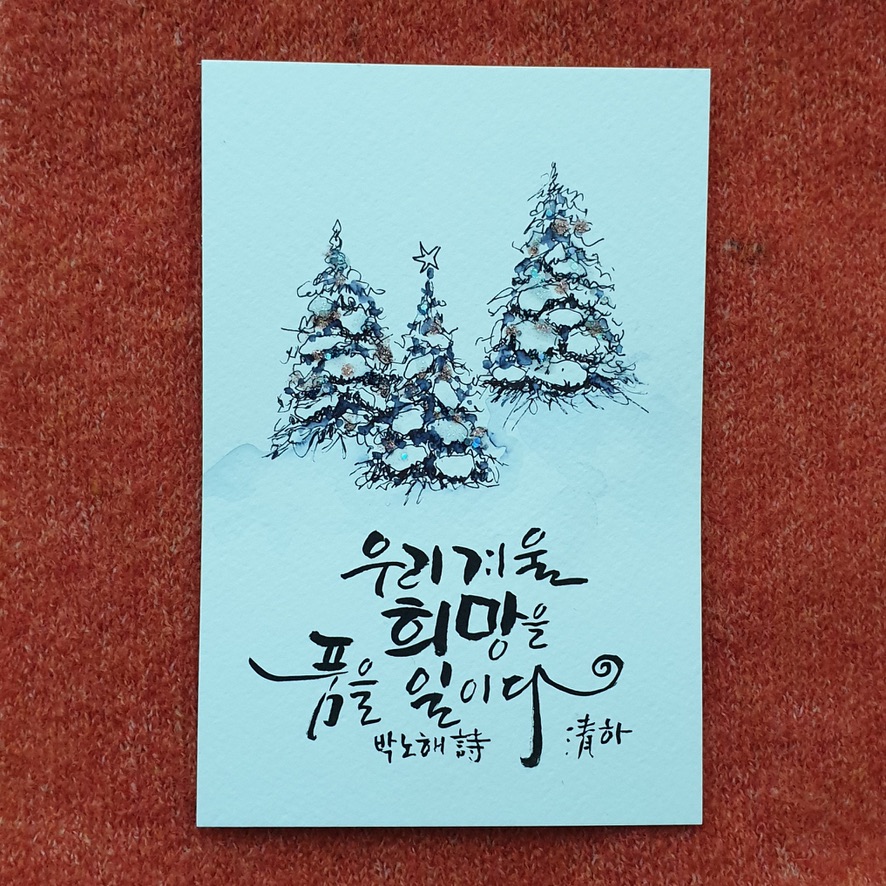 우리 겨울
희망을
품을 일이다
박노해 詩
清하